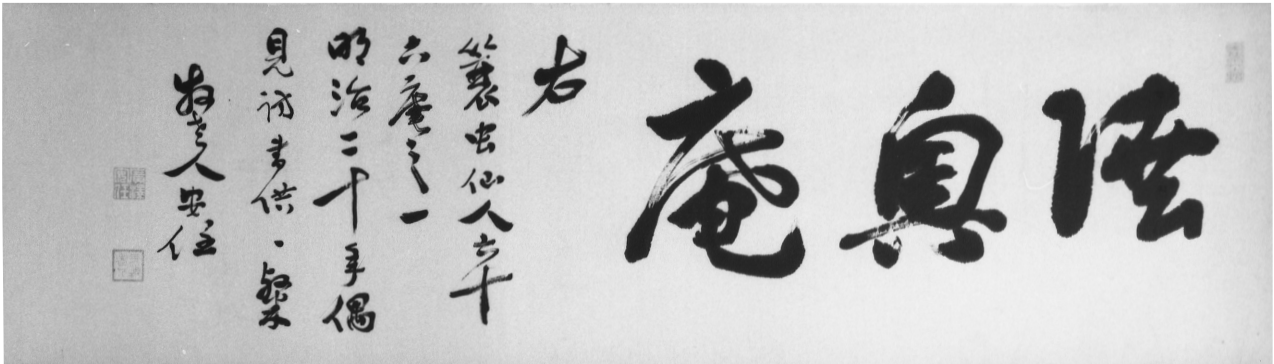 陸奥庵
右
簑虫仙人六十
六庵之一
明治二十年偶
見訪書供一粲
老人安住